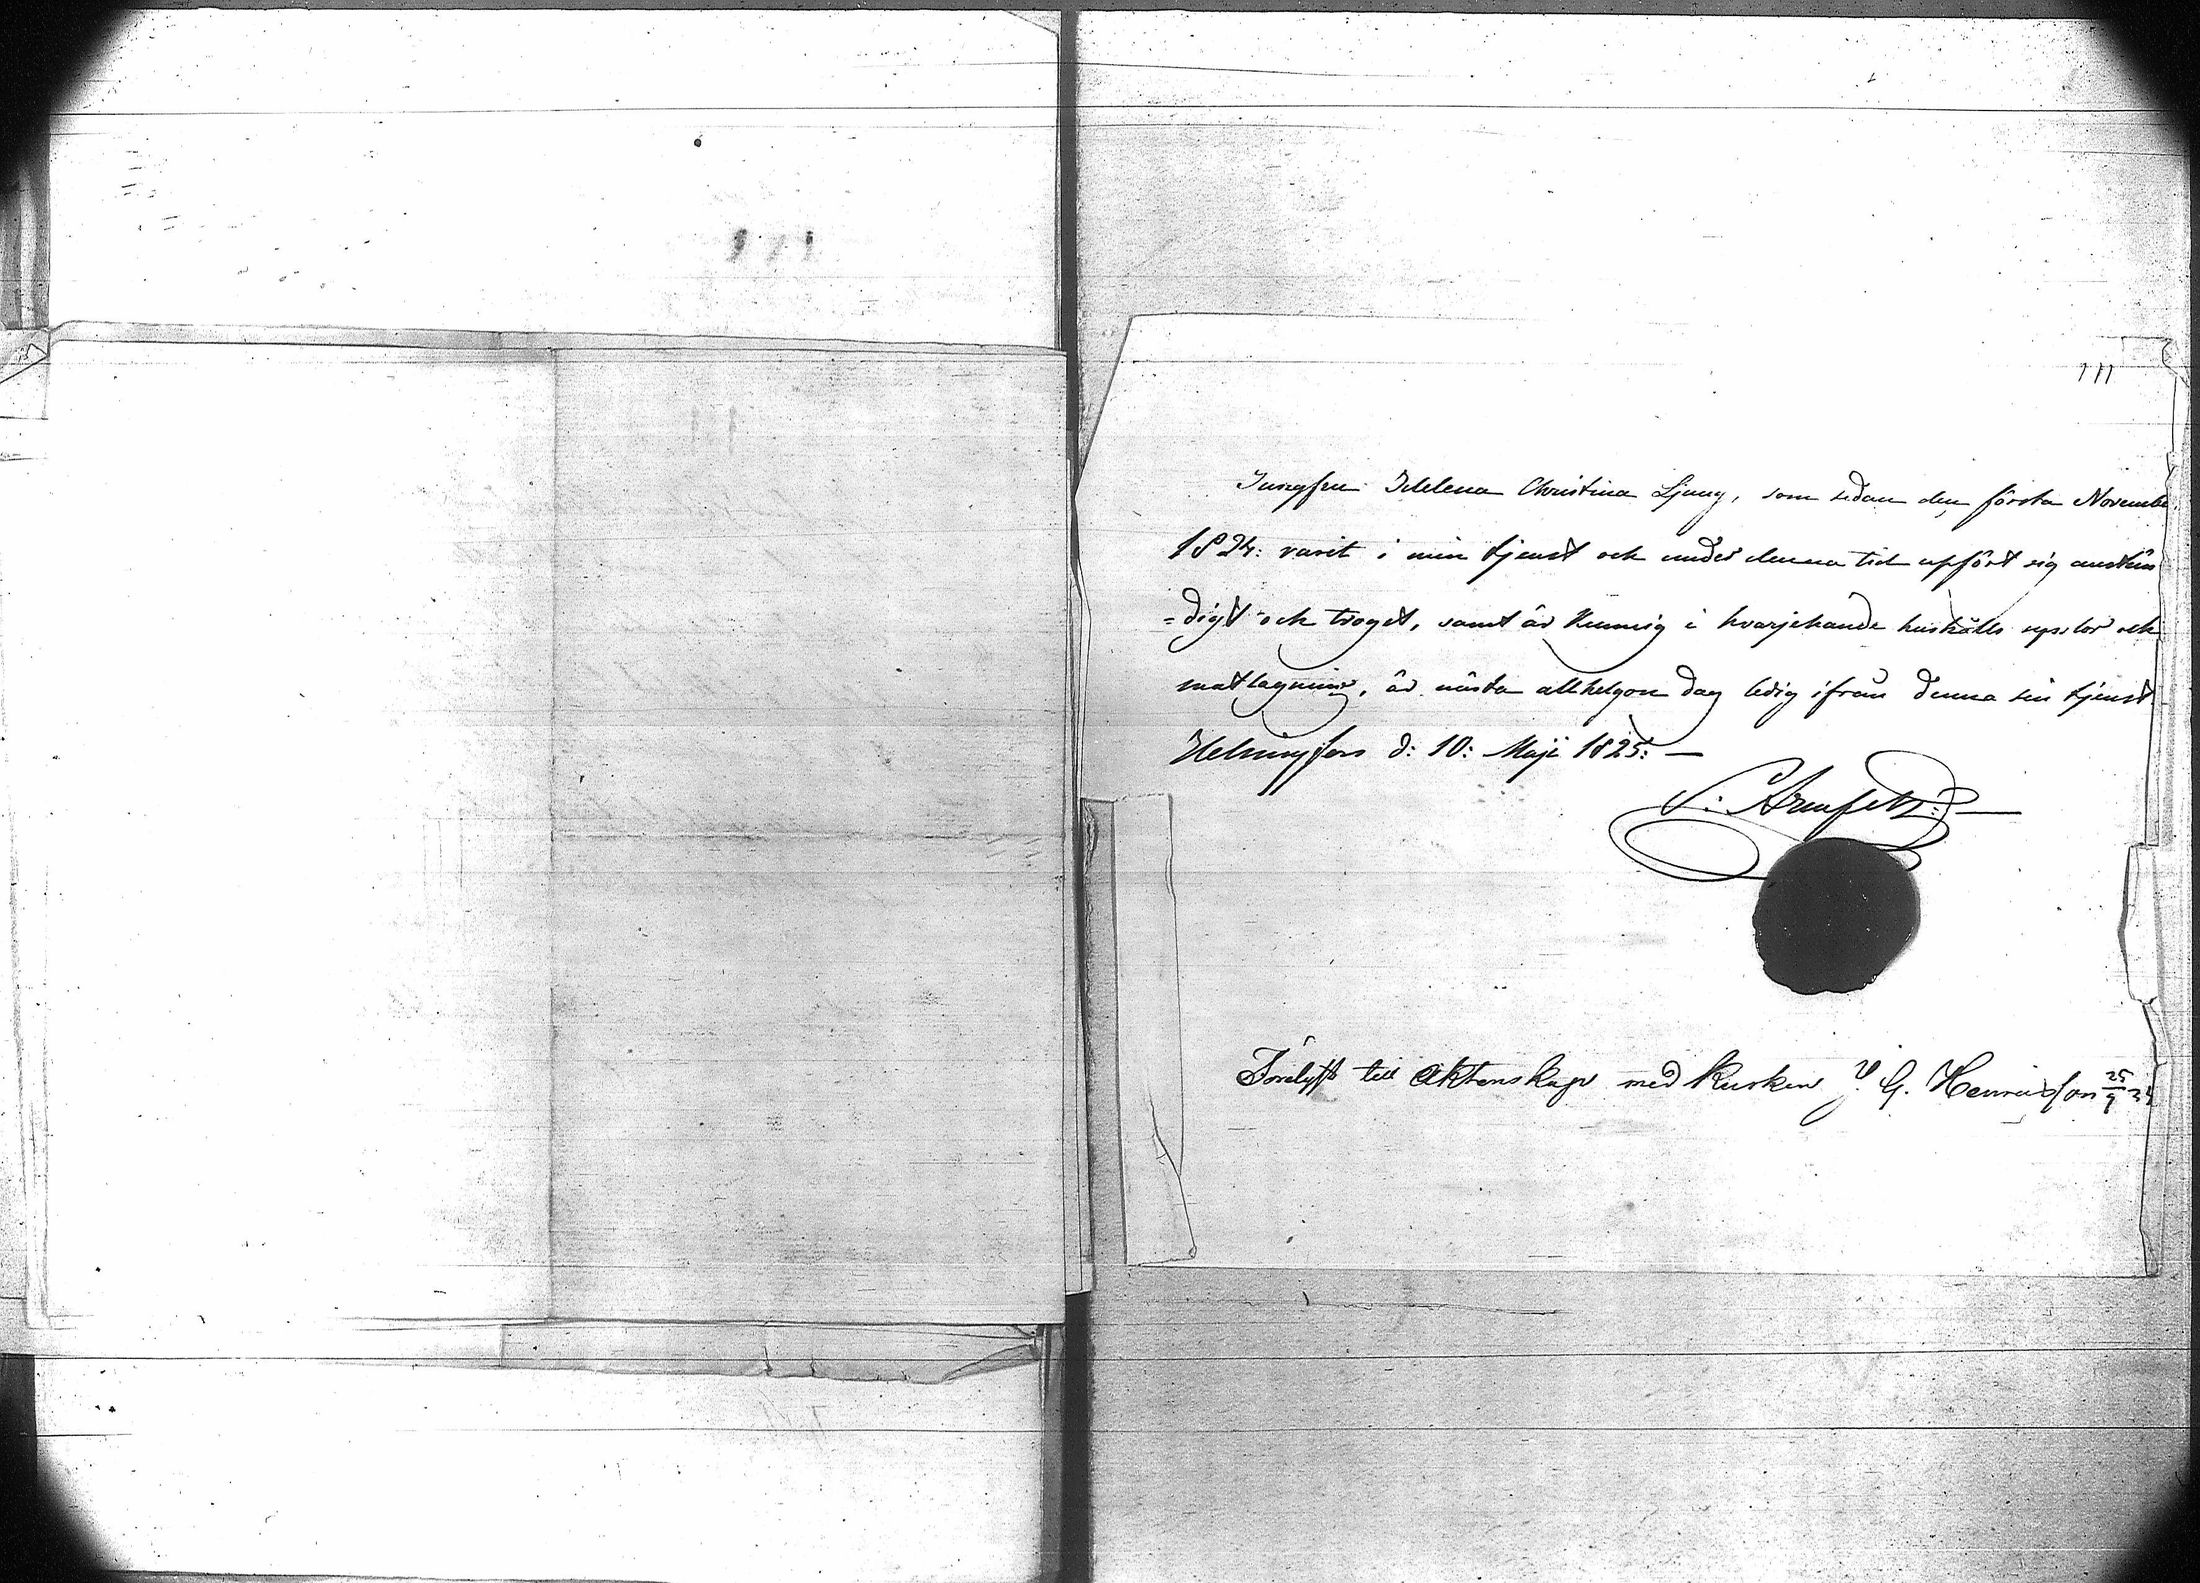 111
Jungfru Helena Christina Ljung, som sedan den första November
1824: varit i min tjenst och under denna tid upfört sig anstän
=digt och troget, samt är kunnig i hvarjehanda hushålls sysslor och
matlagning, är nästa allhelgon dag ledig ifrån denna sin tjenst
Helsingfors d: 10: Maji 1825:—
Förelyst till äktenskap med Kusken J. G. Henricsson 25/9